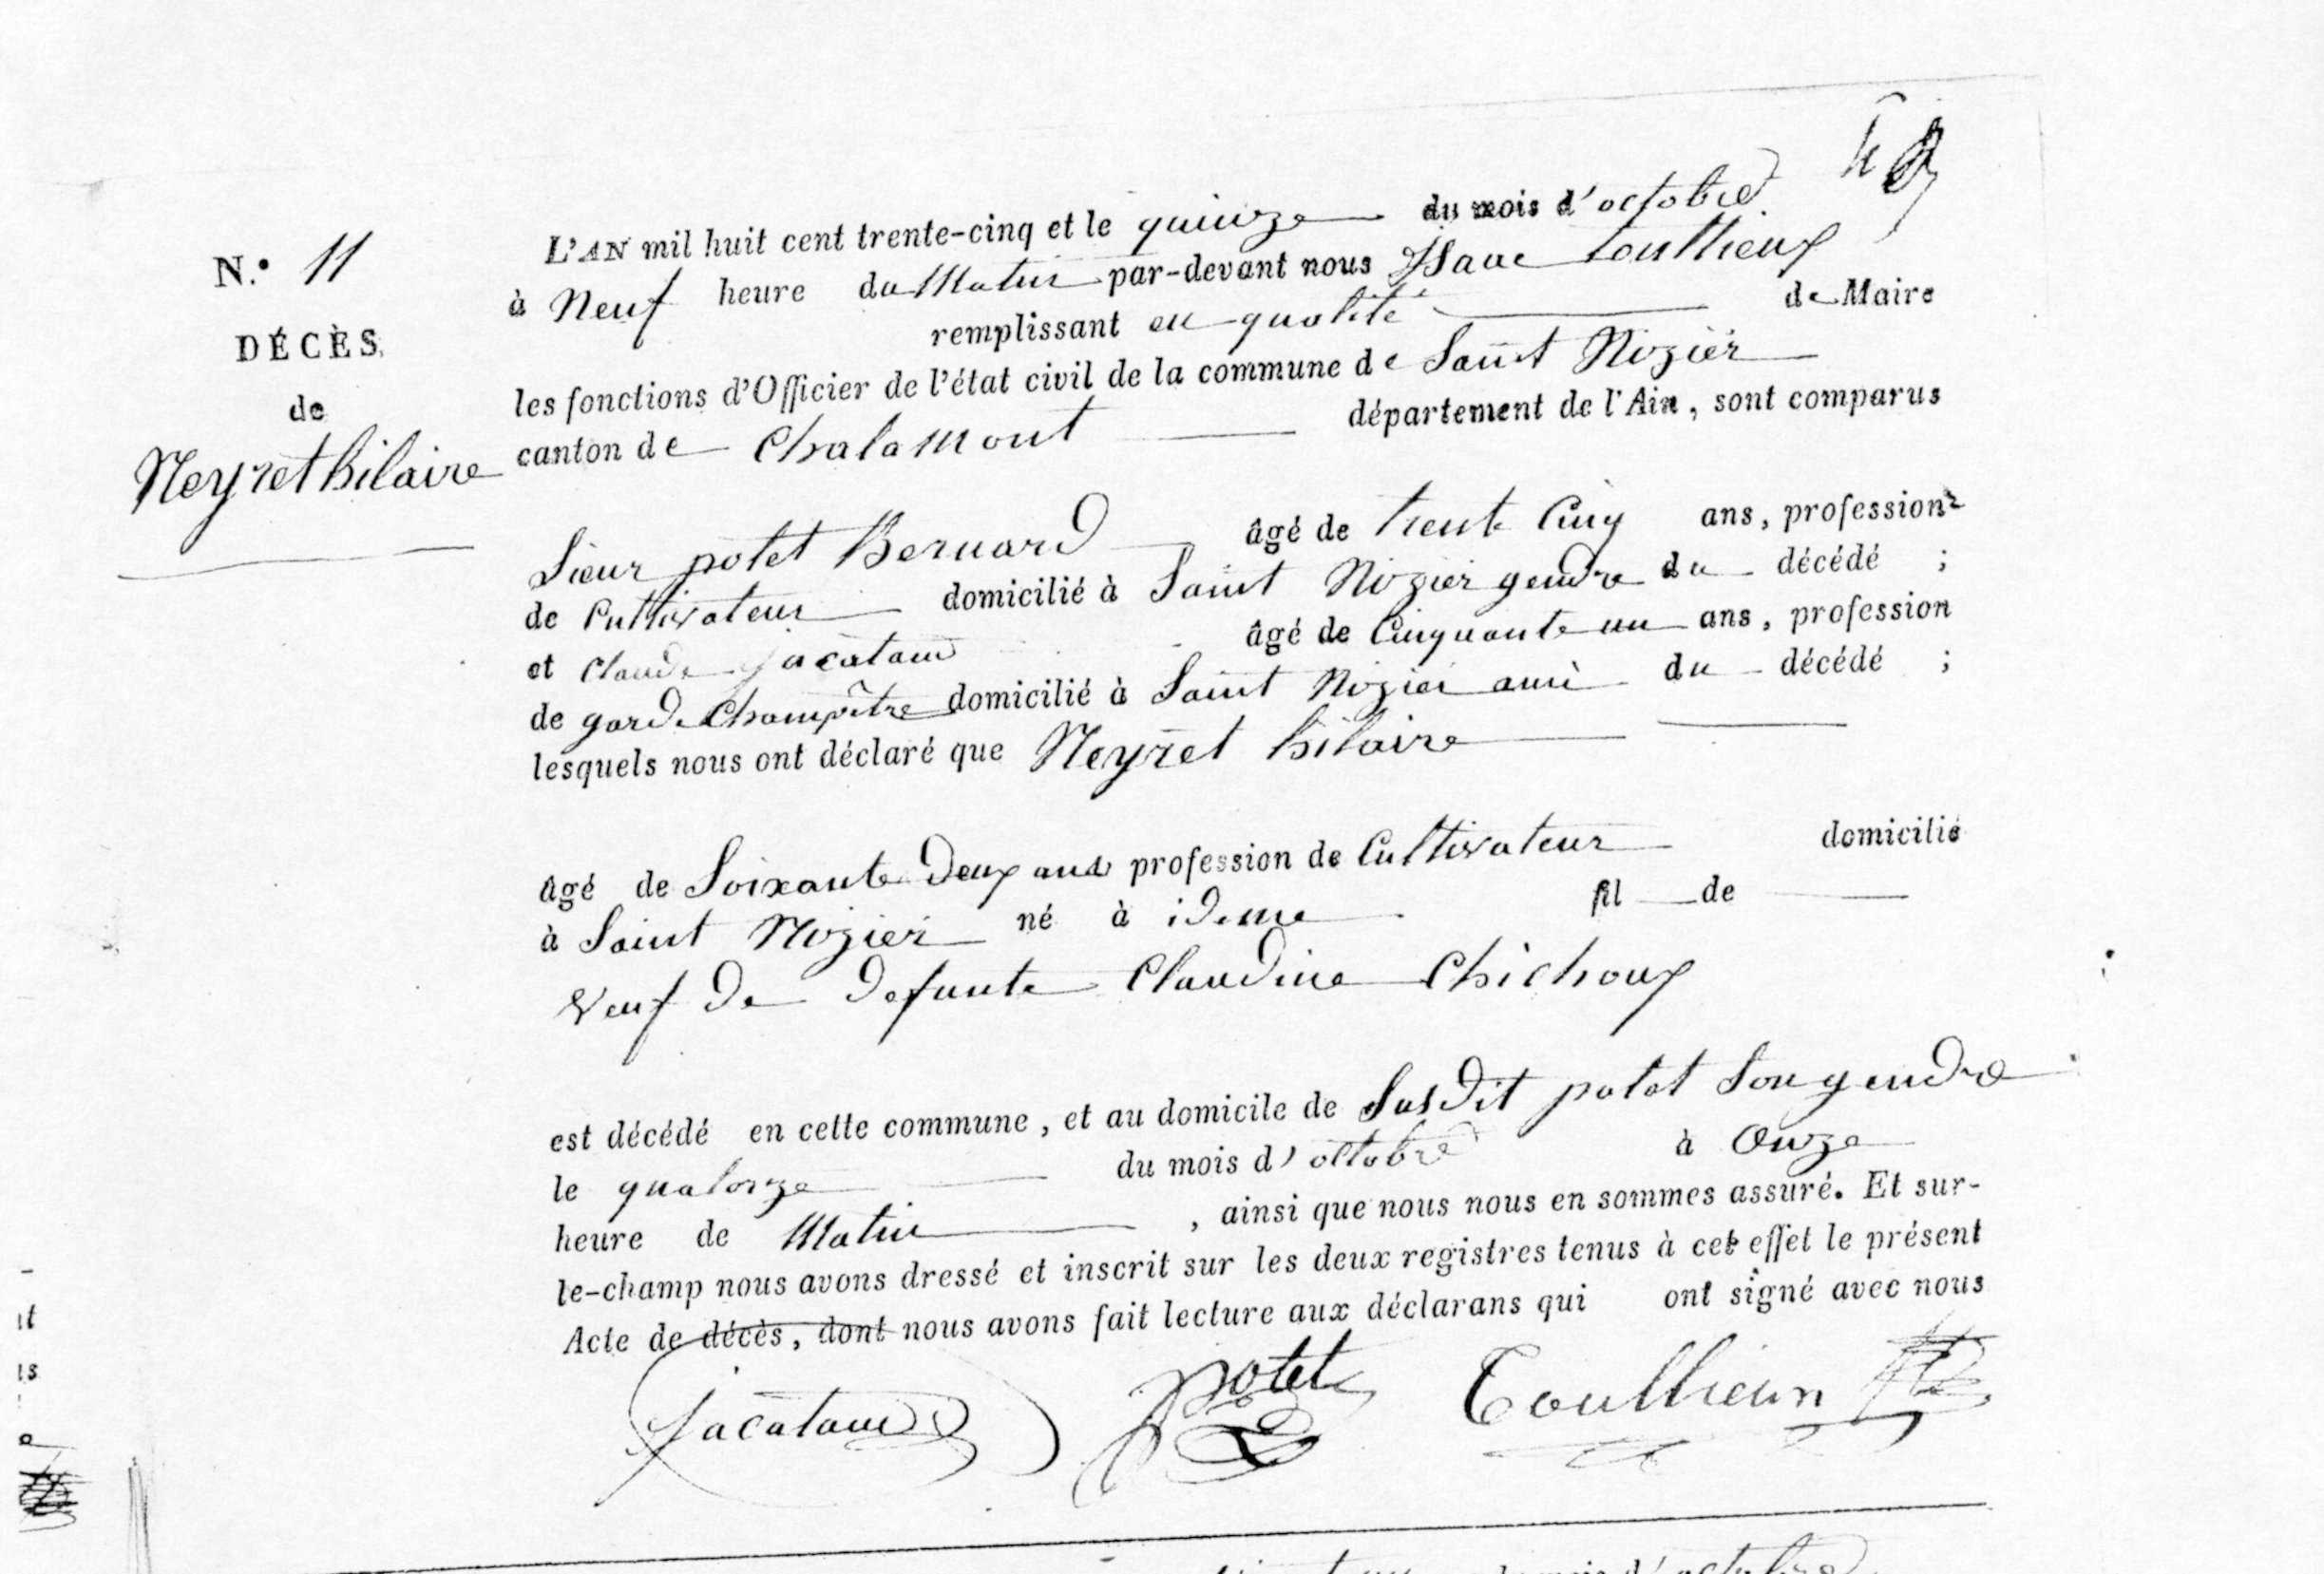 N.° 11
DÉCÈS
de
Neyret hilaire
L'AN mil huit cent trente-cinq et le quinze du mois d'octobre
à Neuf heure du Matin par-devant nous Isaac Toullieux
remplissant en qualité de Maire
les fonctions d'Officier de l'état civil de la commune de Saint Nizier
canton de Chalamont département de l'Ain, sont comparus
Sieur potet Bernard âgé de trente Cinq ans, profession
de Cultivateur domicilié à Saint Nizier gendre du décédé ;
et Claude Jacataud âgé de Cinquante un ans, profession
de garde Champêtre domicilié à Saint Nizier ami du décédé ;
lesquels nous ont déclaré que Neyret hilaire
âgé de Soixante Deux ans profession de Cultivateur domicilié
à Saint Nizier né à ideme fil de
Veuf De Defunte Claudine Chichoux
est décédé en cette commune, et au domicile de SusDit potet Son gendre
le quatorze du mois d'octobre à Onze
heure de Matin, ainsi que nous nous en sommes assuré. Et sur-
le-champ nous avons dressé et inscrit sur les deux registres tenus à cet effet le présent
Acte de décès, dont nous avons fait lecture aux déclarans qui ont signé avec nous
Jacataud potet Toullieux